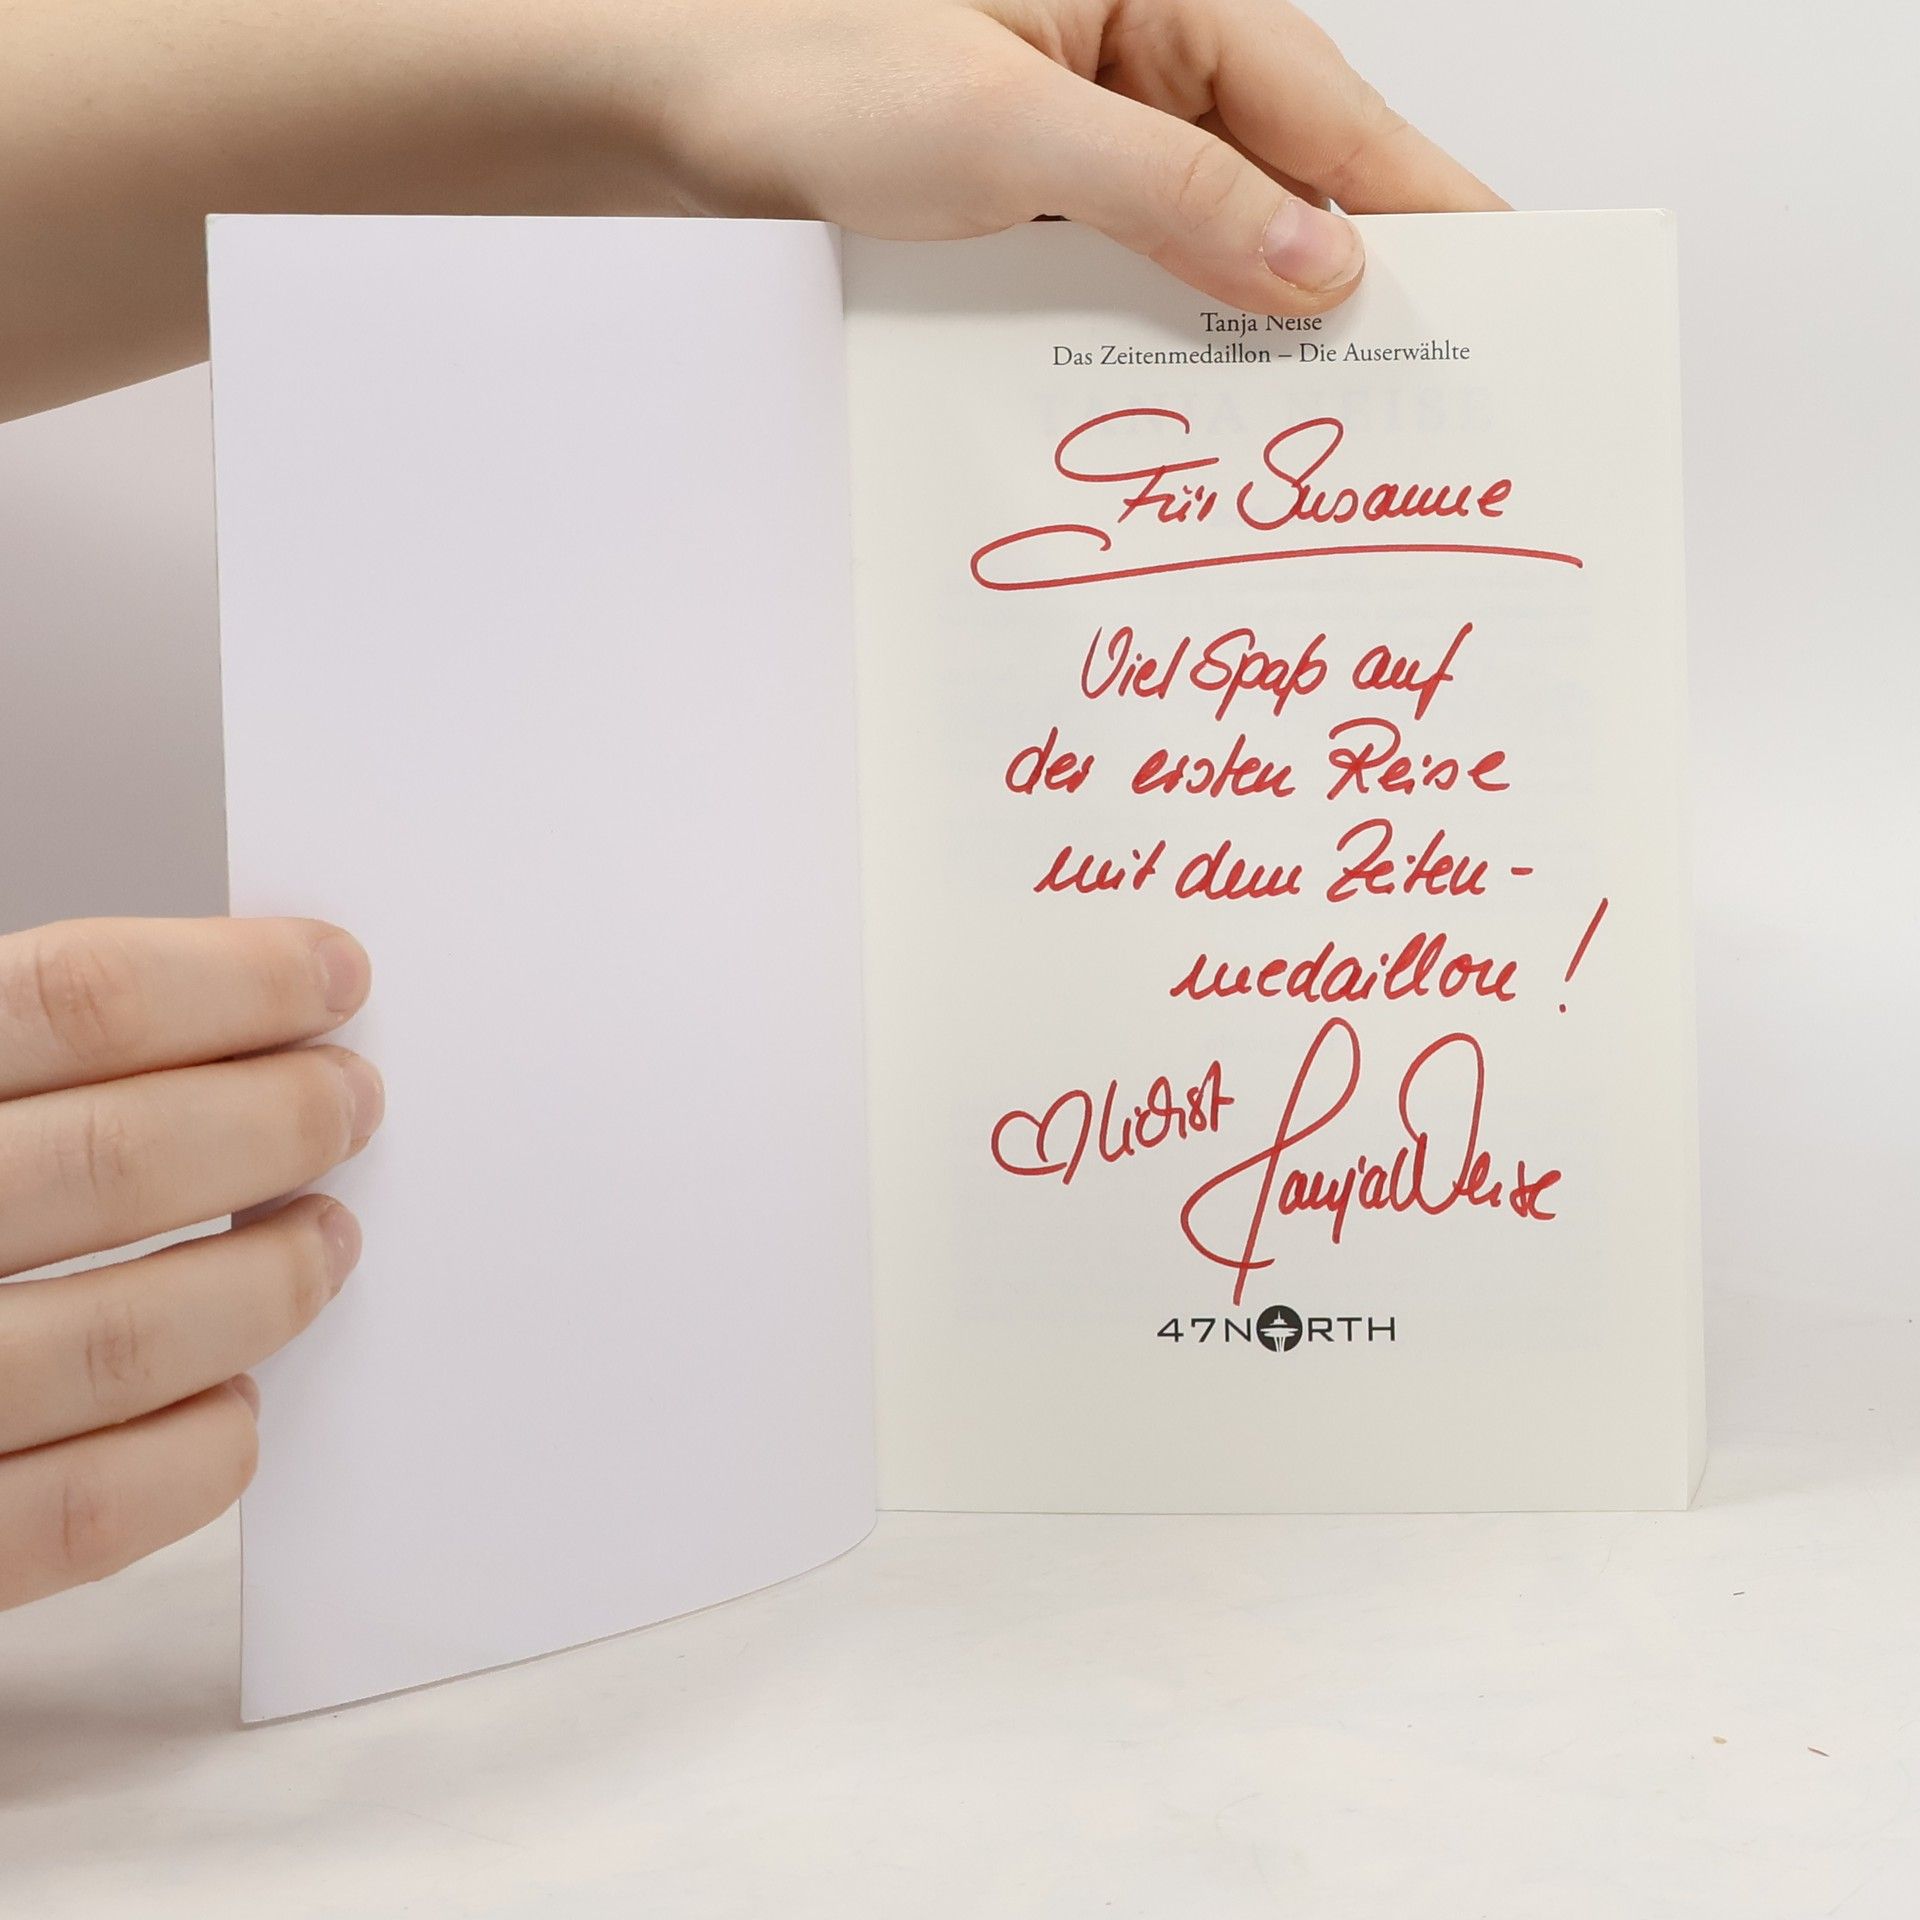 Tanja Neise
Das Zeitenmedaillon – Die Auserwählte
Für Susanne
Viel Spaß auf
der ersten Reise
mit dem Zeiten-
medaillon!
♡lichst Tanja Neise
47NORTH